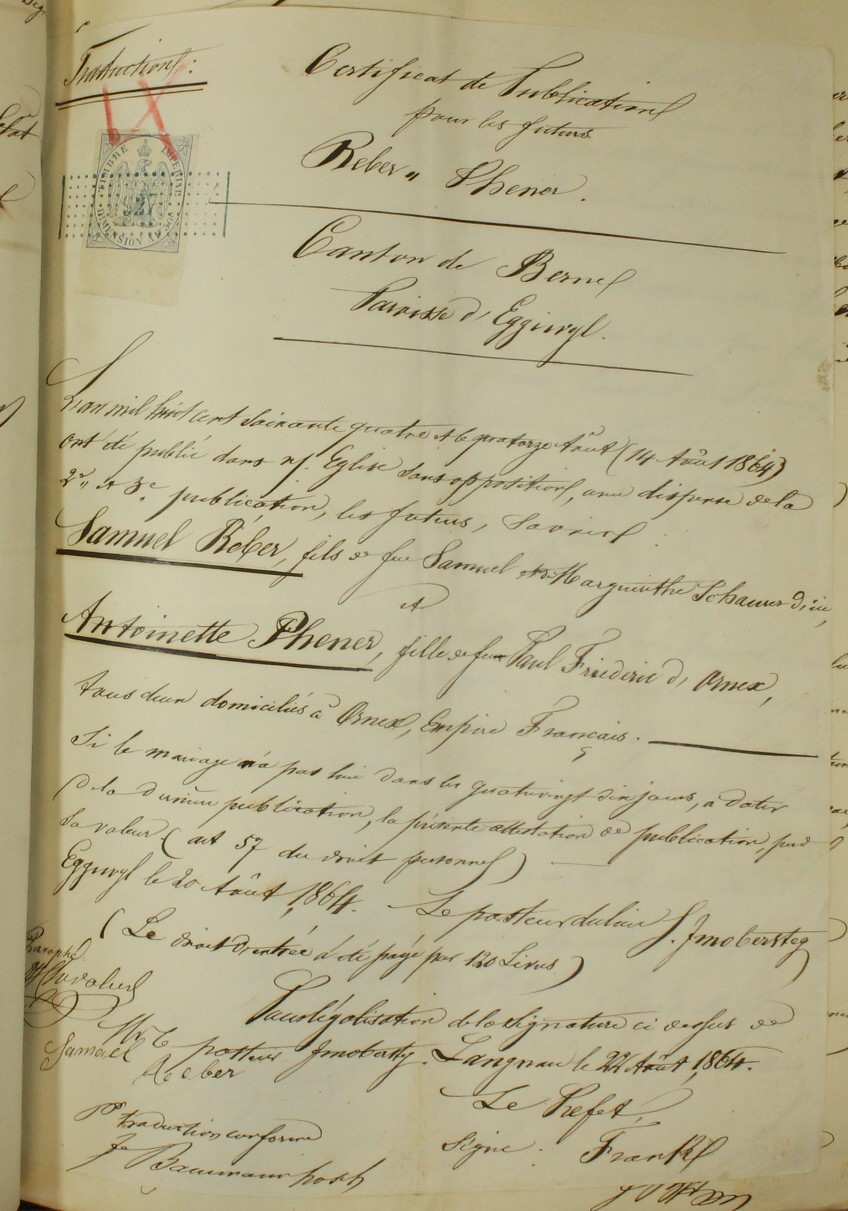 Traduction :
IX
TIMBRE IMPERIAL
DIMENSION
Certificat de Publication
pour les futurs
Reber " Phener.
Canton de Berne
Paroisse d'Eggiwyl.
L'an mil huit cent soixante quatre et le quatorze Août (14 Août 1864)
ont été publié dans n/. Eglise sans opposition, avec dispense de la
2e et 3e publication, les futurs, savoir :
Samuel Réber, fils de feu Samuel et de Marguerithe d'ici,
et
Antoinette Phener, fille de feu Paul Friederic d'Ornex,
tous deux domiciliés à Ornex, Empire Français.
Si le mariage n'a pas lieu dans les quatrevingt dix jours, à dater
de la dernière publication, la présente attestation de publication, perd
sa valeur (art 57 du droit personnel)
Eggiwyl le 20 Août 1864. Le pasteur du lieu J. Imobersteg
(Le droit d'entrée a été payé par 120 Livres)
Paraphé
Chevalier
Pour légalisation de la signature ci dessus de
Mr le pasteur Imobersteg. Langnau le 22 Août 1864.
Samuel
Reeber
Le Préfet,
Signé :
pr traduction conforme